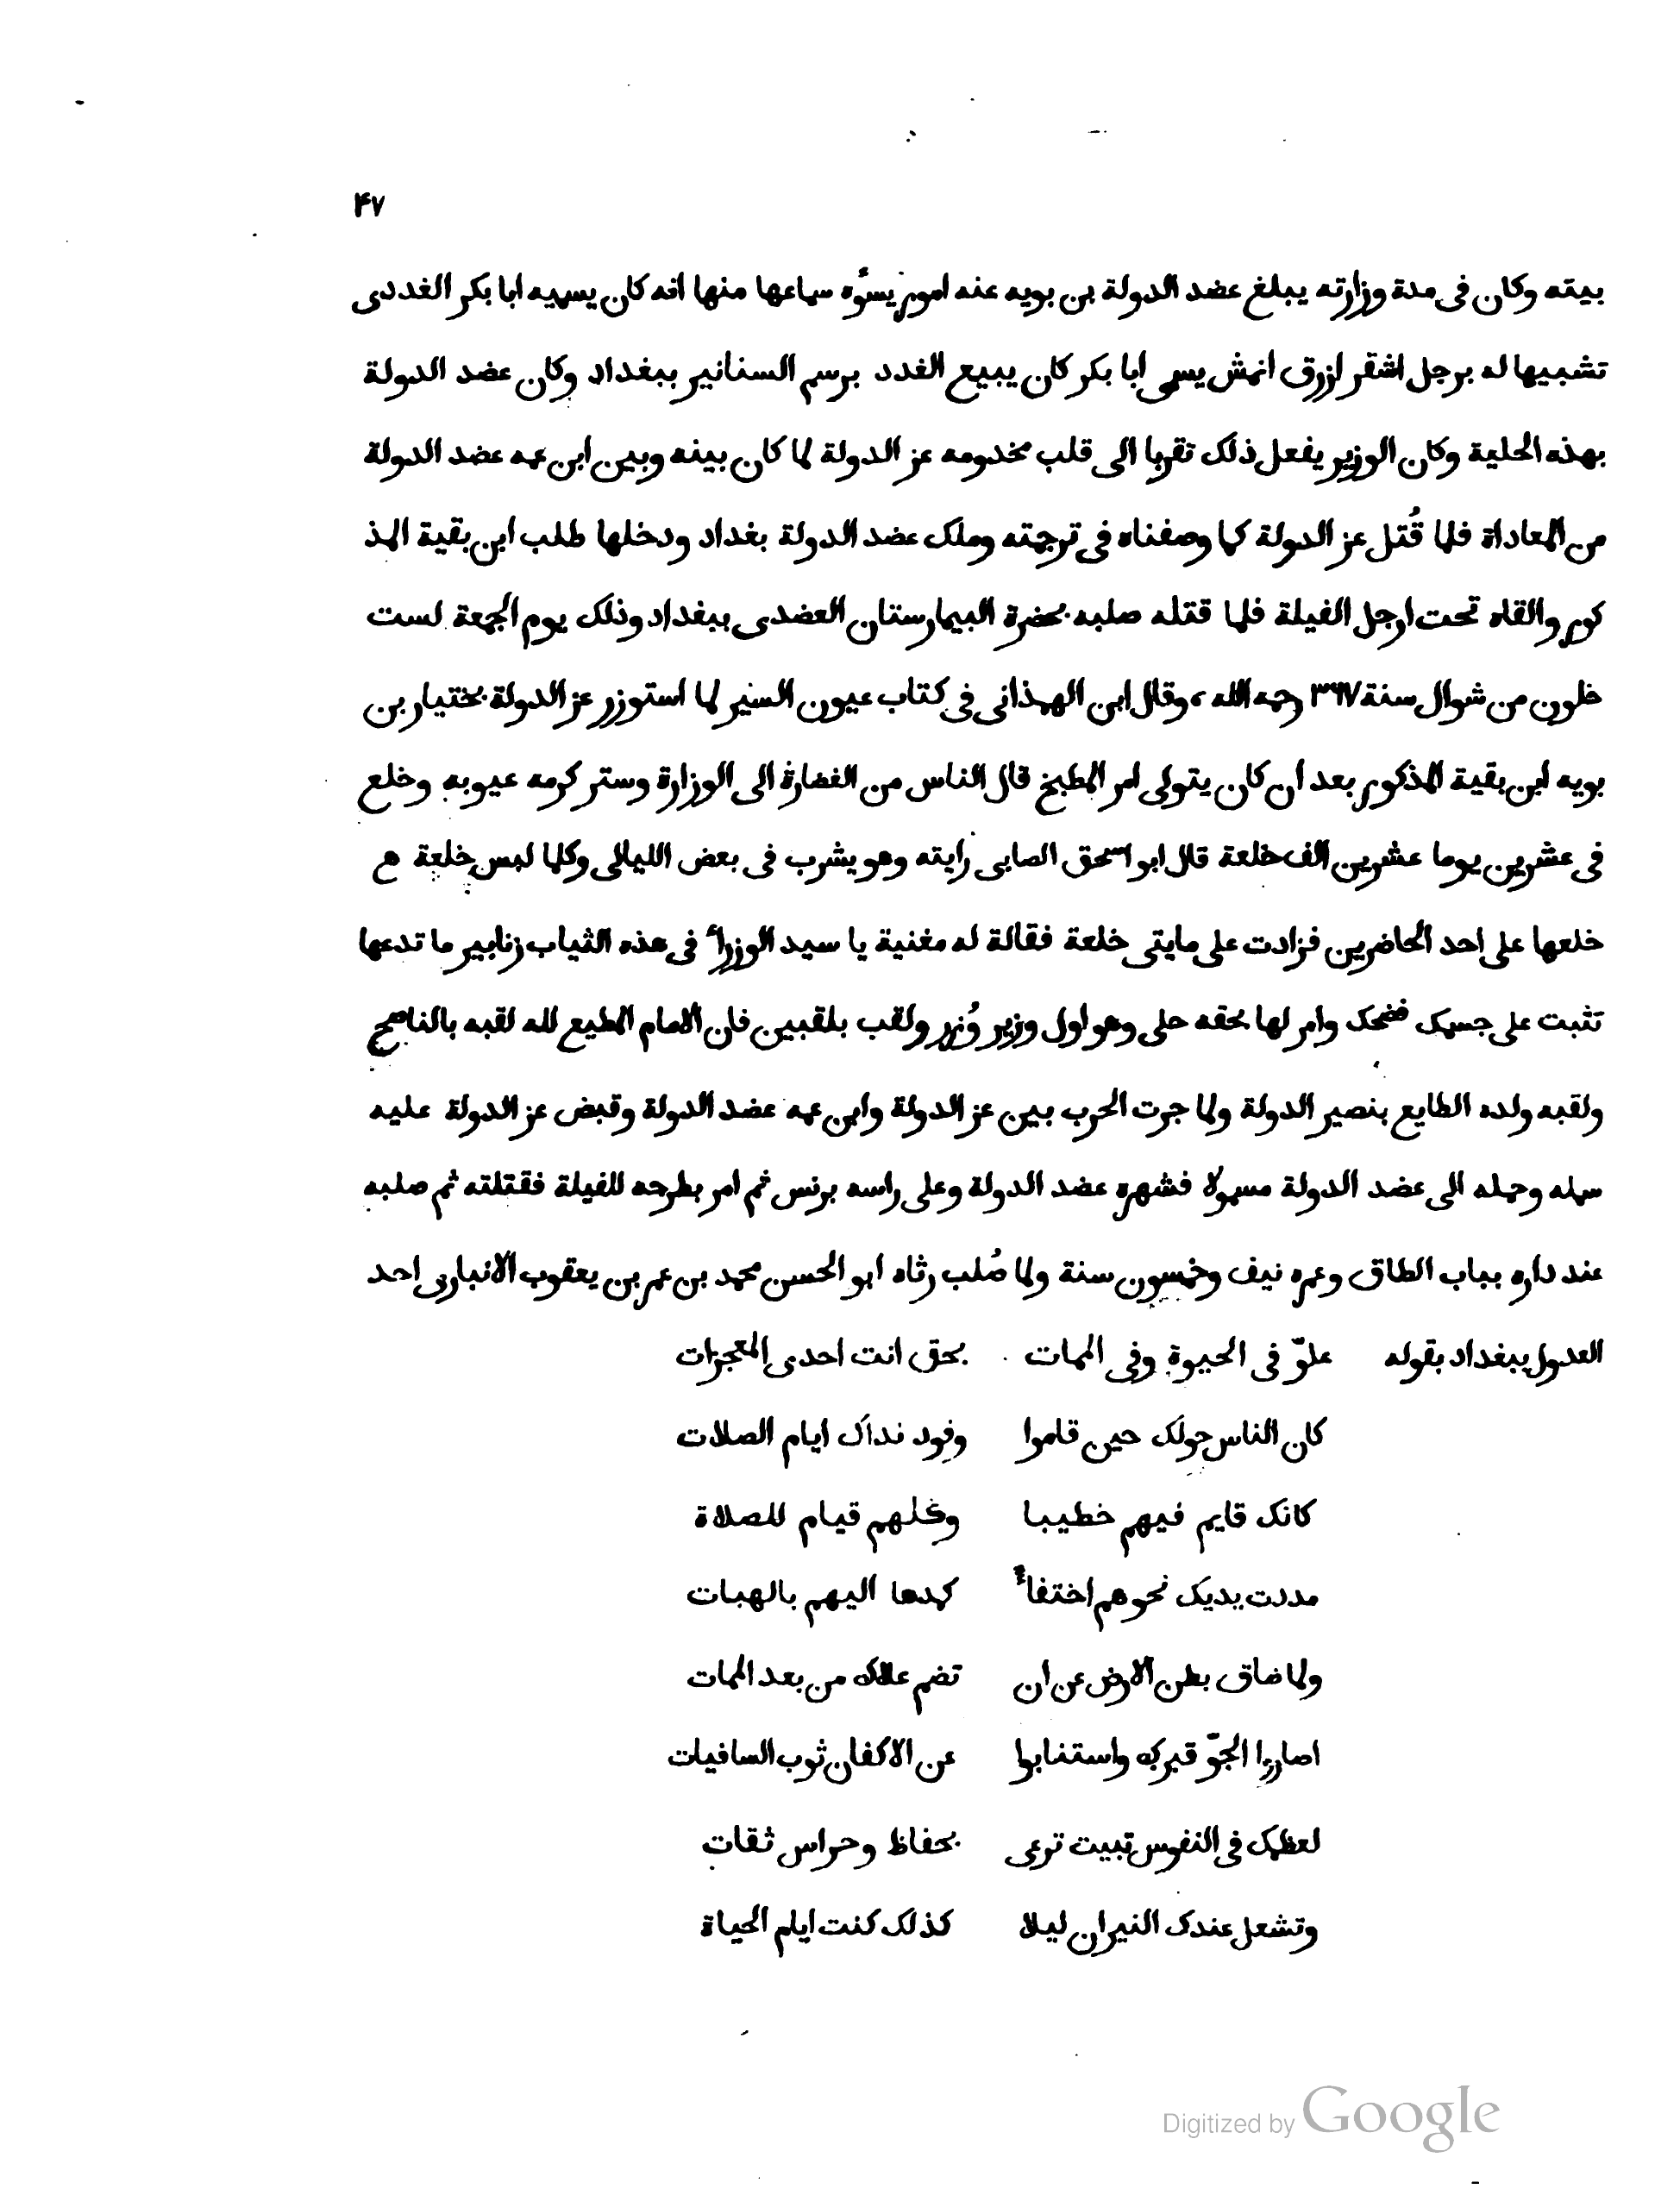 ۴۷
بيته وكان فى مدة وزارته يبلغ عضد الدولة بن بويه عنه امور يسوٴه سماعها منها انه كان يسميه ابا بكر الغددى
تشبيها له برجل اشقر ازرق انمش يسمى ابا بكر كان يبيع الغدد برسم السنانير ببغداد وكان عضد الدولة
بهذه الحلية وكان الوزير يفعل ذلك تقربا الى قلب مخدومه عز الدولة لما كان بينه وبين ابن عمه عضد الدولة
من المعاداة فلما قُتل عز الدولة كما وصفناه فى ترجمته وملك عضد الدولة بغداد ودخلها طلب ابن بقية المذ
كور والقاه تحت ارجل الفيلة فلما قتله صلبه بحضرة البيمارستان العضدى ببغداد وذلك يوم الجمعة لست
خلون من شوال سنة ٣٦٧ رحمه الله، وقال ابن الهمذانى فى كتاب عيون السير لما استوزر عز الدولة بختيار بن
بويه ابن بقية المذكور بعد ان كان يتولى امر المطبخ قال الناس من الغضارة الى الوزارة وستر كرمه عيوبه وخلع
فى عشرين يوما عشرين الف خلعة قال ابو اسحق الصابى رايته وهو يشرب فى بعض الليالى وكلما لبس خلعة ع
خلعها على احد الحاضرين فزادت على مايتى خلعة فقالة له مغنية يا سيد الوزراء فى هذه الثياب زنابير ما تدعها
تثبت على جسمك فضحك وامر لها بحقه حلى وهو اول وزير وُزر ولقب بلقبين فان الامام المطيع لله لقبه بالناصح
ولقبه ولده الطايع بنصير الدولة ولما جرت الحرب بين عز الدولة وابن عمه عضد الدولة وقبض عز الدولة عليه
سمله وحمله الى عضد الدولة مسمولا فشهره عضد الدولة وعلى راسه برنس ثم امر بطرحه للفيلة فقتلته ثم صلبه
عند داره بباب الطاق وعمره نيف وخمسون سنة ولما صُلب رثاه ابو الحسن محمد بن عمر بن يعقوب الانبارى احد
العدول ببغداد بقوله علوّ فى الحيوة وفى الممات بحق انت احدى المعجزات
كان الناس حولك حين قاموا وفود نداك ايام الصلات
كانك قايم فيهم خطيبا وكلهم قيام للصلاة
مددت يديك نحوهم اختفاءً كمدها اليهم بالهبات
ولما ضاق بطن الارض عن ان تضم علاك من بعد الممات
اصاروا الجوّ قبرك واستنابوا عن الاكفان ثوب السافيات
لعظمك فى النفوس تبيت ترعى بحفاظ وحراس ثقات
وتشعل عندك النيران ليلا كذلك كنت ايام الحياة
Digitized by Google